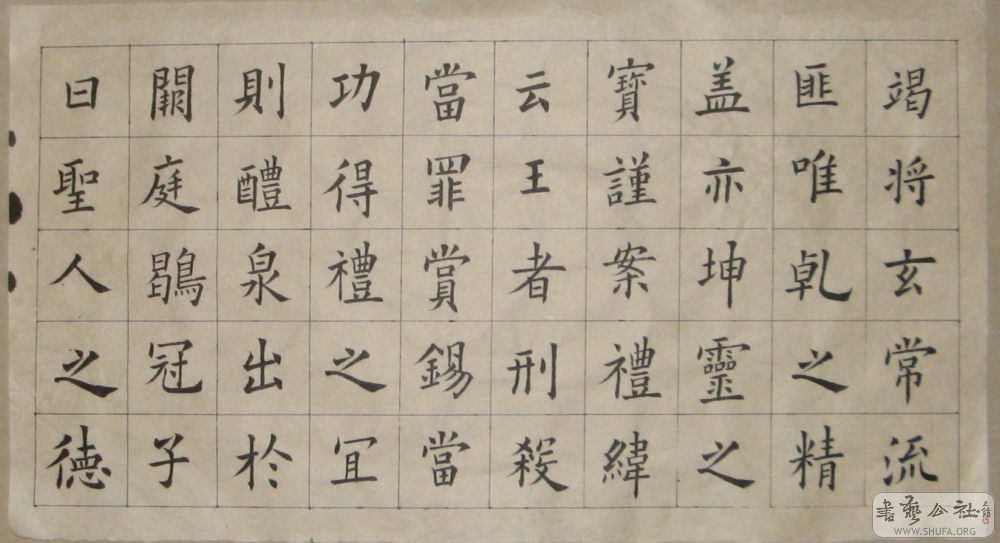 竭將玄常流
匪唯乹之精
盖亦坤靈之
寶謹案禮緯
云王者刑殺
當罪賞錫當
功得禮之宜
則醴泉出於
闕庭鶡冠子
曰聖人之德
書藝公社
WWW.SHUFA.ORG